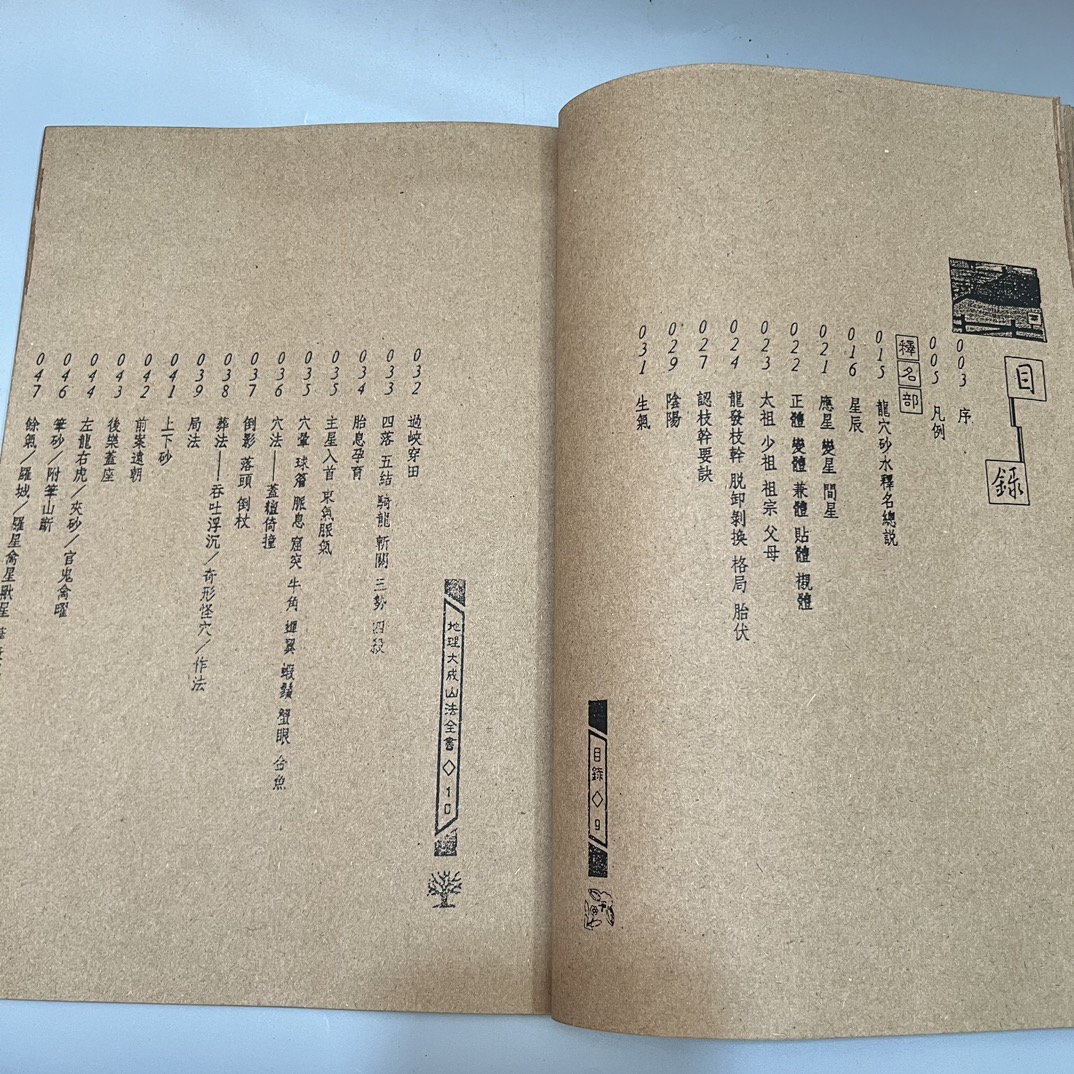 目錄
003 序
005 凡例
釋名部
015 龍穴砂水釋名總説
016 星辰
021 應星 變星 間星
022 正體 變體 兼體 貼體 襯體
023 太祖 少祖 祖宗 父母
024 龍發枝幹 脱卸剝換 格局 胎伏
027 認枝幹要訣
029 陰陽
031 生氣
目錄◇9
032 過峽穿田
033 四落 五結 騎龍 斬關 三勢 四殺
034 胎息孕育
035 主星入首 束氣脈氣
035 穴暈 球簷 脈息 窟突 牛角 蟬翼 蝦鬚 蟹眼 合魚
036 穴法——蓋粘倚撞
037 倒影 落頭 倒杖
038 葬法——吞吐浮沉／奇形怪穴／作法
039 局法
041 上下砂
042 前案遠朝
043 後樂蓋座
044 左龍右虎／夾砂／官鬼禽曜
046 筆砂／附筆山斷
047 餘氣／羅城／羅星禽星獸星
地理大成山法全書◇10